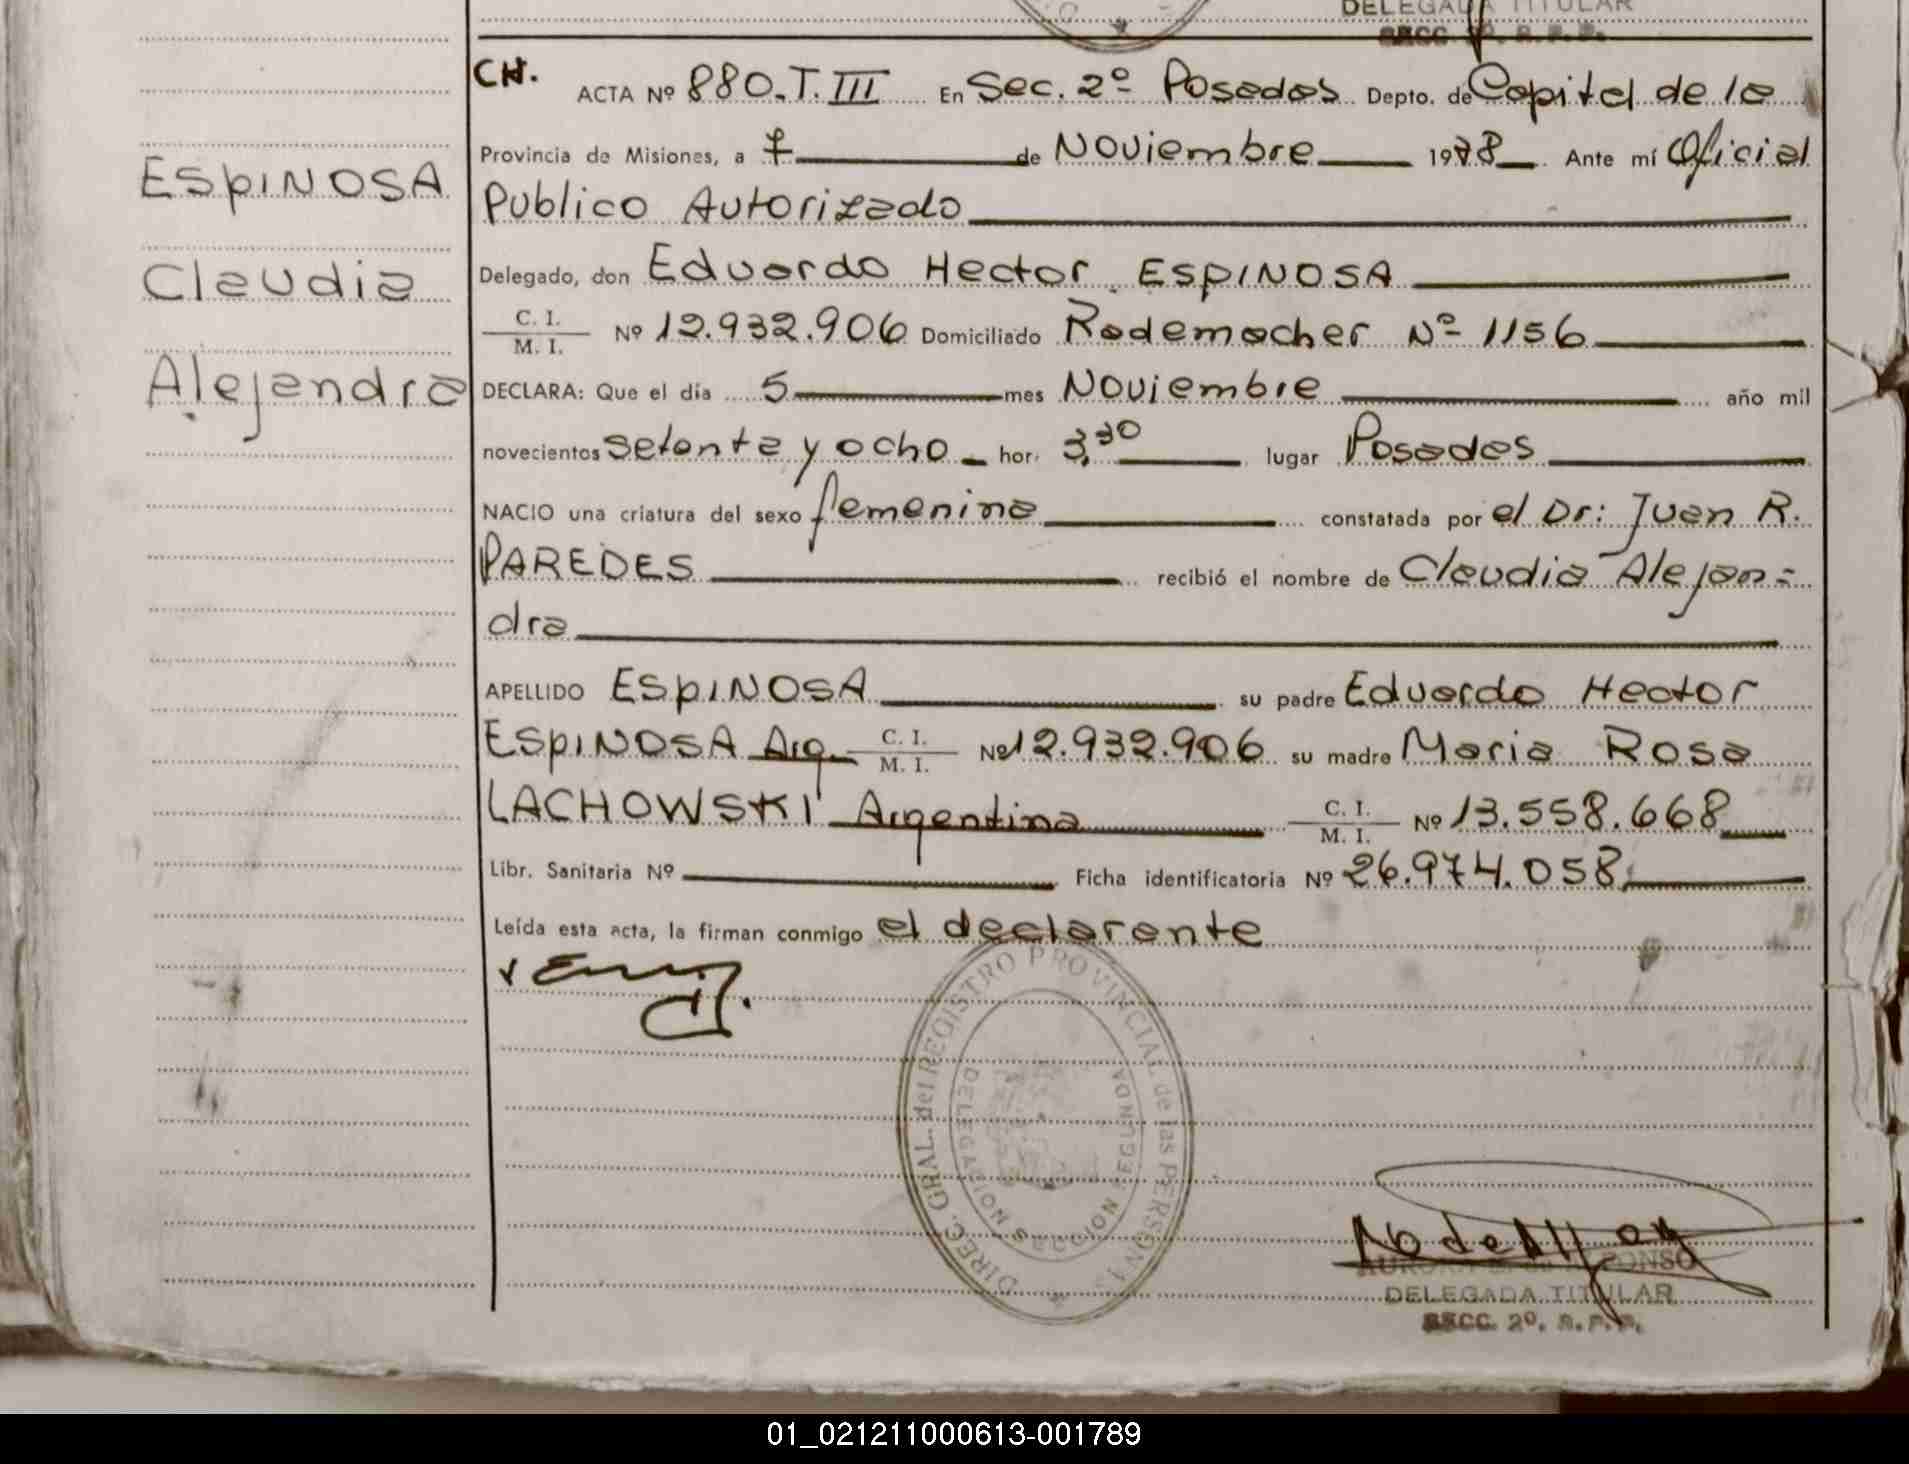 DELEGADA TITULAR
SECC. 2º. R.P.P.
CH.
ACTA Nº 880.T.III En Sec. 2º Posadas Depto. de Capital de la
Provincia de Misiones, a 7 de Noviembre 1978 Ante mí Oficial
Publico Autorizado
Delegado, don Eduardo Hector ESPINOSA
C. I.
M. I. Nº 12.932.906 Domiciliado Rademacher Nº 1156
DECLARA: Que el día 5 mes Noviembre año mil
novecientos setenta y ocho hor. 3,30 lugar Posadas
NACIO una criatura del sexo femenina constatada por el Dr: Juan R.
PAREDES recibió el nombre de Claudia Alejan=
dra
APELLIDO ESPINOSA su padre Eduardo Hector
ESPINOSA Arg. C. I.
M. I. Nº 12.932.906 su madre Maria Rosa
LACHOWSKI Argentina C. I.
M. I. Nº 13.558.668
Libr. Sanitaria Nº Ficha identificatoria Nº 26.974.058
Leída esta acta, la firman conmigo el declarante
ESPINOSA
Claudia
Alejandra
DIREC. GRAL. del REGISTRO PROVINCIAL de las PERSONAS
DELEGACION SECCION SEGUNDA
DELEGADA TITULAR
SECC. 2º. R.P.P.
01_021211000613-001789